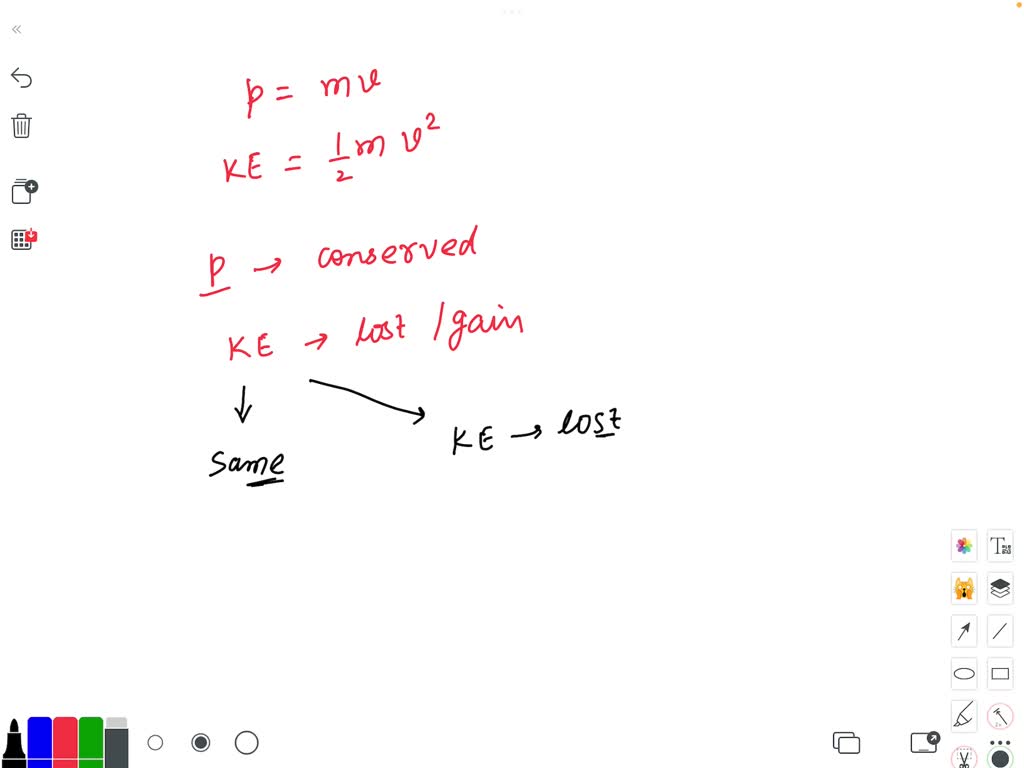 p = mv
KE = 1/2 m v²
p → conserved
KE → lost / gain
KE → lost
same